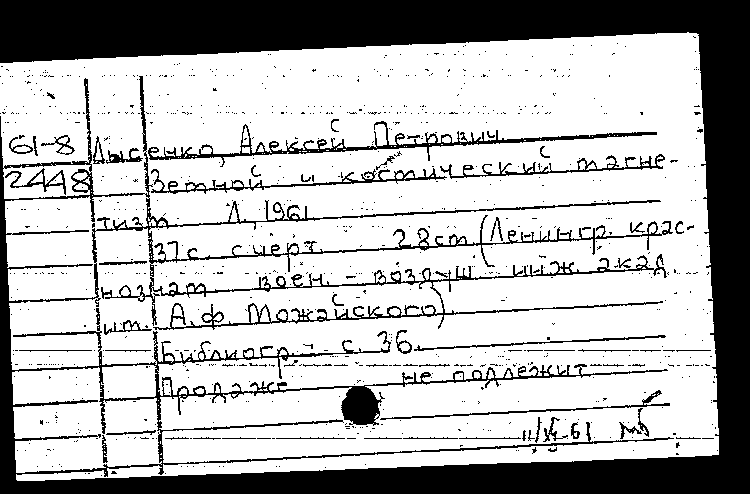 61-8 Лысенко, Алексей Петрович
2448 Земной и космический магне-
тизм. Л., 1961
37 с. с черт. 28 см (Ленингр. крас-
нознам. воен.-воздуш. инж. акад.
им. А.Ф. Можайского).
Библиогр.: с. 36.
Продаже не подлежит